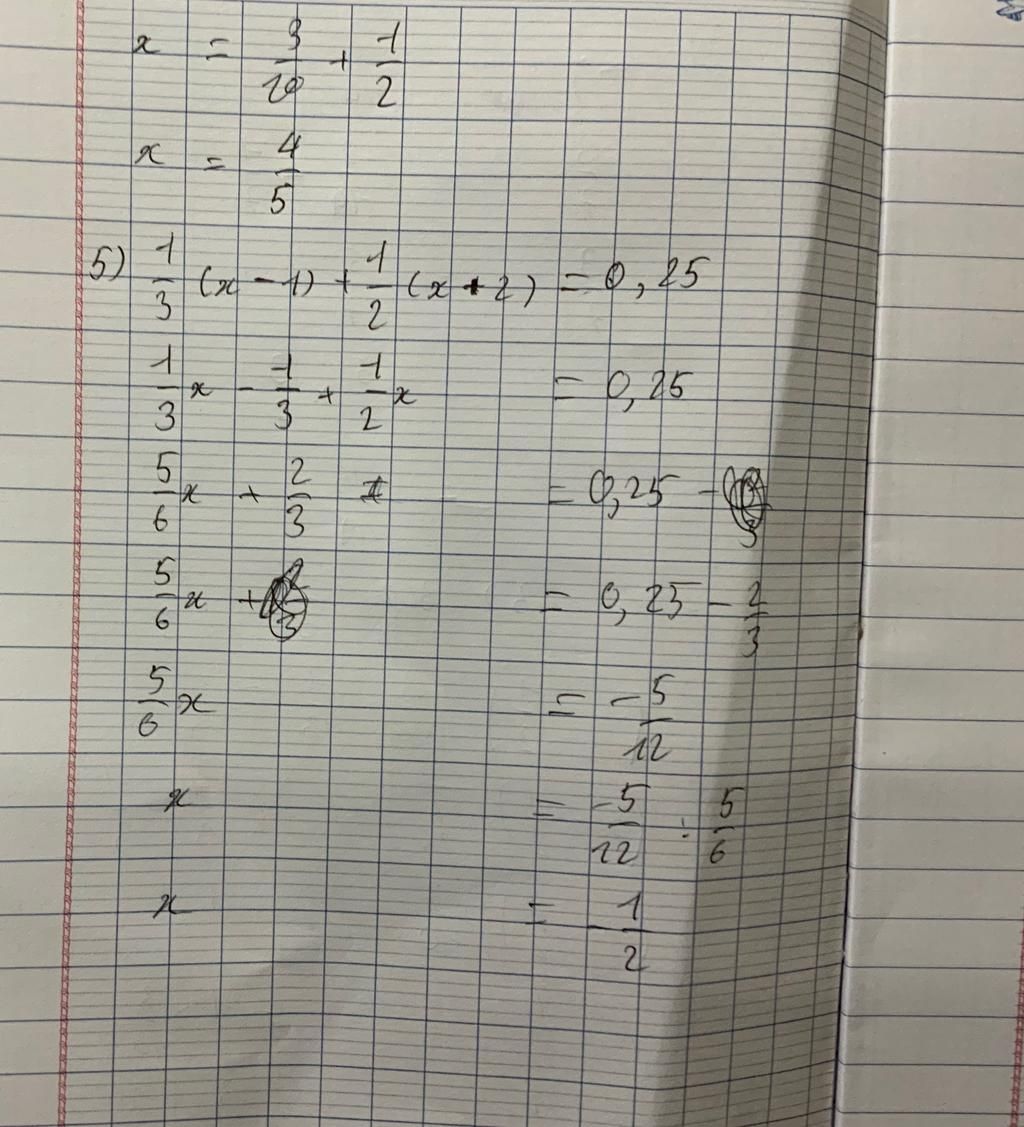 x = 3/20 + 1/2
x = 4/5
5) 1/3 (x - 1) + 1/2 (x + 2) = 0,25
1/3 x - 1/3 + 1/2 x = 0,25
5/6 x + 2/3 = 0,25 -
5/6 x + = 0,25 - 2/3
5/6 x = -5/12
x = -5/12 : 5/6
x = -1/2